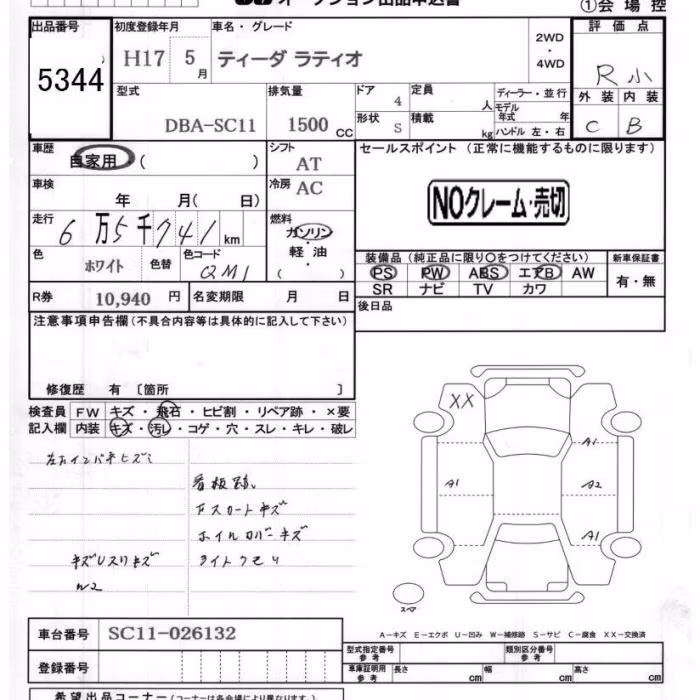 オークション出品申込書
①会場控
出品番号
5344
初度登録年月
H17 5月
車名・グレード
ティーダ ラティオ
2WD
・
4WD
評価点
R 小
外装 内装
C B
型式
DBA-SC11
排気量
1500 CC
ドア 4
形状 S
定員 人
積載 kg
ディーラー・並行
モデル
年式 年
ハンドル 左・右
車歴
自家用 ( )
シフト
AT
セールスポイント (正常に機能するものに限ります)
車検
年 月( 日)
冷房 AC
NOクレーム・売切
走行
6万5千741km
燃料
ガソリン
・
軽油
( )
色
ホワイト
色替
色コード
QM1
装備品 (純正品に限り○をつけてください)
PS PW ABS エアB AW
SR ナビ TV カワ
新車保証書
有・無
R券 10,940 円
名変期限 月 日
後日品
注意事項申告欄(不具合内容等は具体的に記入して下さい)
修復歴 有 〔箇所 〕
検査員 FW キズ・飛石・ヒビ割・リペア跡・×要
記入欄 内装 キズ・汚し・コゲ・穴・スレ・キレ・破レ
看板跡
下スカートキズ
ホイルカバーキズ
ライトクモリ
XX
A1
A1
A2
A1
スペア
A－キズ E－エクボ U－凹み W－補修跡 S－サビ C－腐食 XX－交換済
車台番号 SC11-026132
登録番号
型式指定番号
参考
類別区分番号
参考
車庫証明用
参考
長さ cm 幅 cm 高さ cm
希望出品コーナー(コーナーは各会場により異なります)